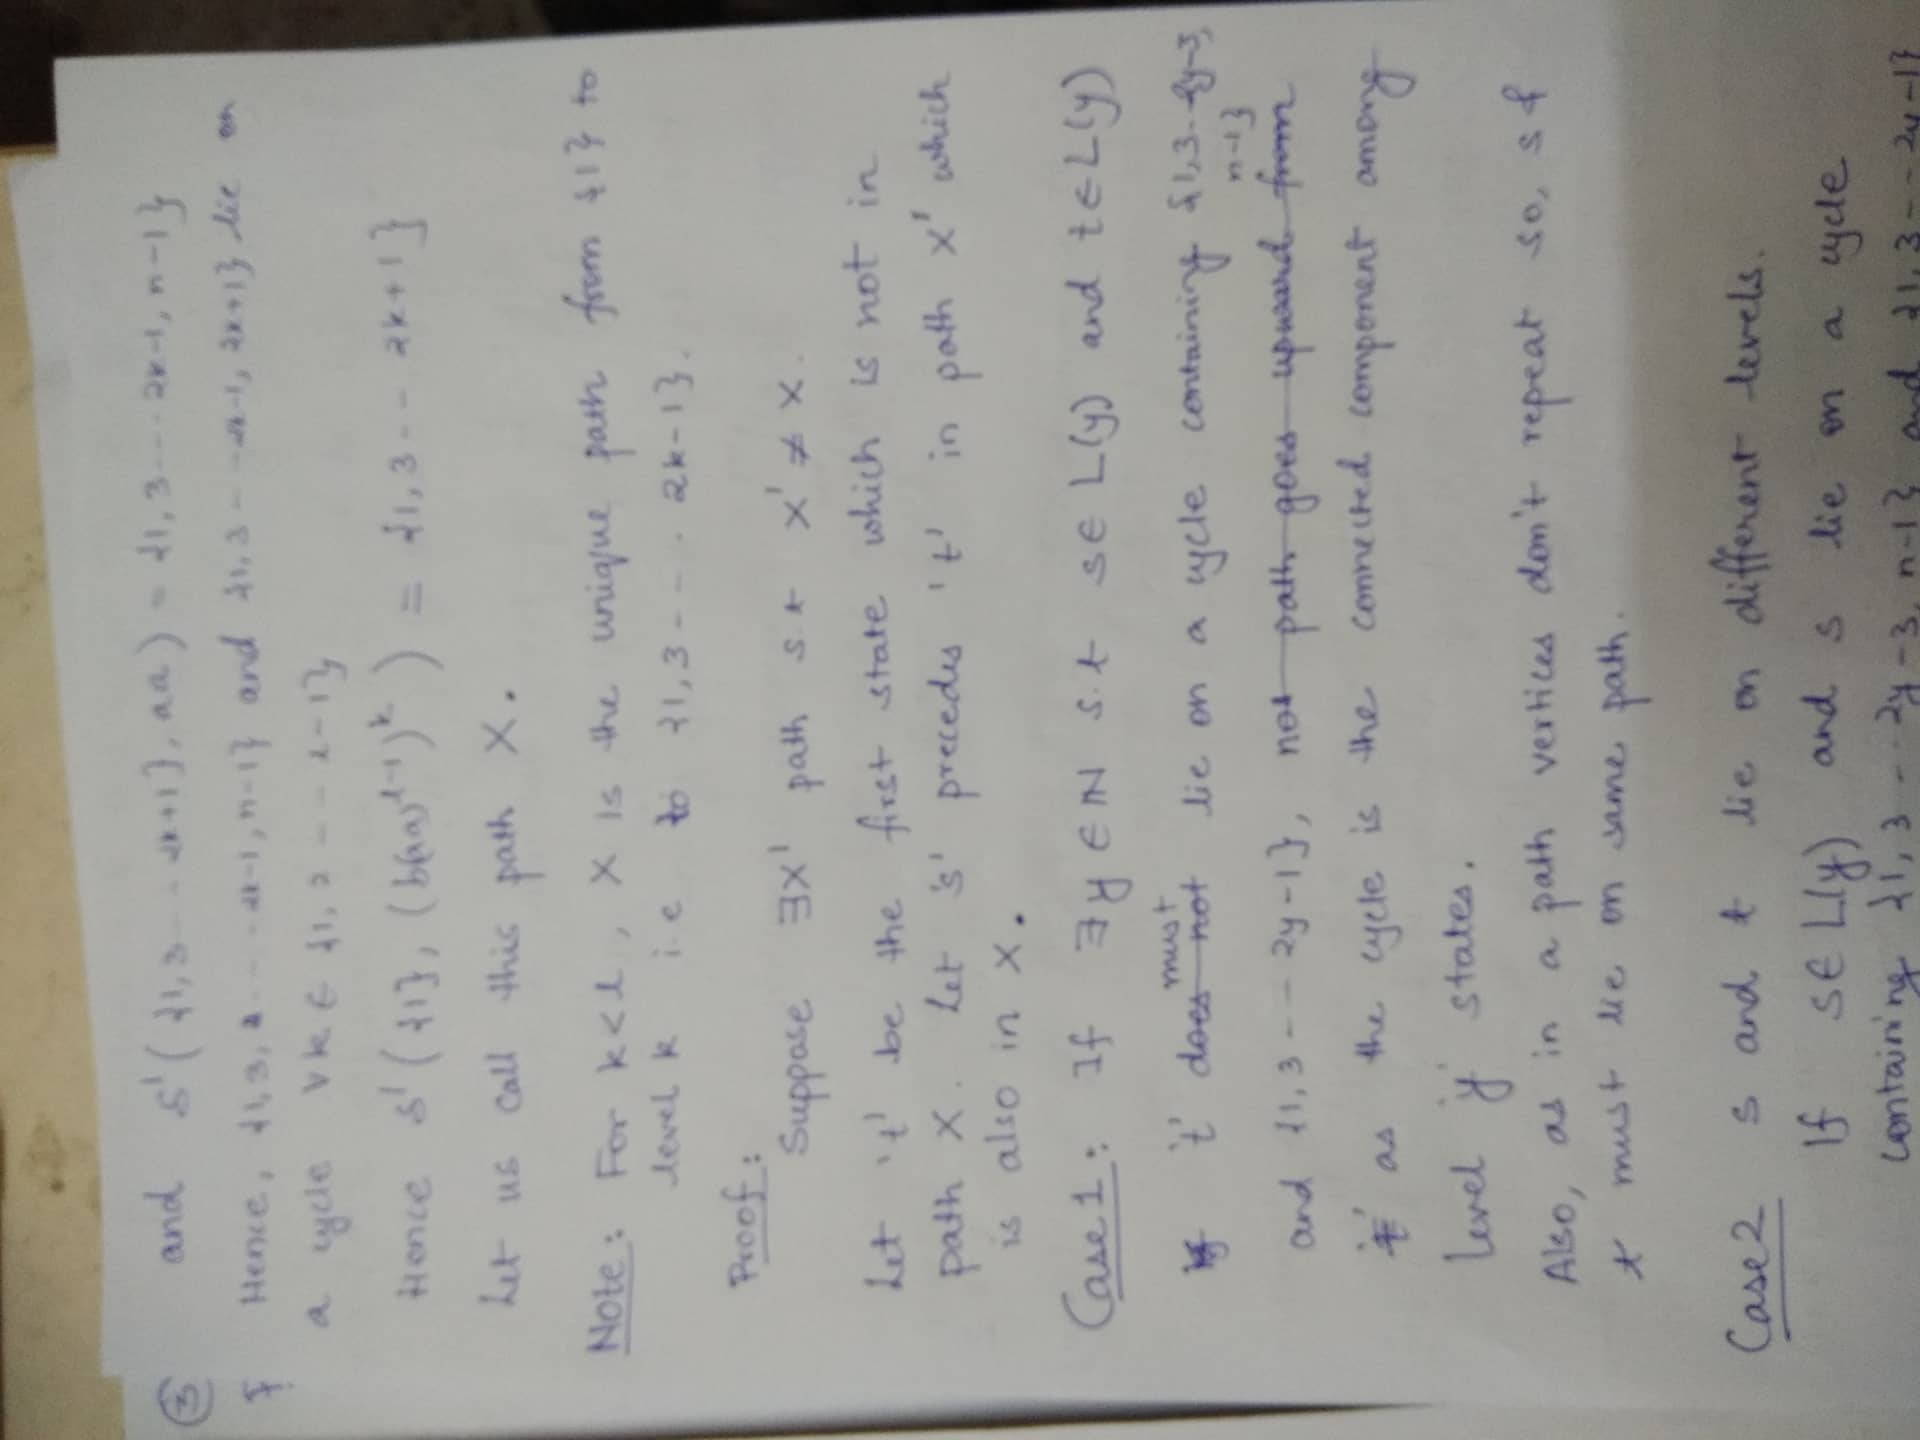 ③ and δ'({1,3---2k+1}, aa) = {1,3---2k-1, n-1}
Hence, {1,3, ---2k-1, n-1} and {1,3---2k-1, 2k+1} lie on
a cycle ∀k ∈ {1,2---l-1}
Hence δ'({1}, (b(aa)^{l-1})^k) = {1,3--- 2k+1}
Let us call this path X.
Note: For k<l, X is the unique path from {1} to
level k i.e to {1,3---. 2k-1}.
Proof:
Suppose ∃X' path s.t X' ≠ X.
Let 't' be the first state which is not in
path X. Let 's' precedes 't' in path X' which
is also in X.
Case 1: If ∃ y ∈ N s.t s ∈ L(y) and t ∈ L(y)
't' does not must lie on a cycle containing {1,3---2y-3, n-1}
and {1,3---2y-1}, not path goes upward from
't' as the cycle is the connected component among
level 'y' states.
Also, as in a path vertices don't repeat so, s &
t must lie on same path.
Case 2 s and t lie on different levels.
If s ∈ L(y) and s lie on a cycle
containing {1,3---2y-3, n-1} and {1,3---2y-1}